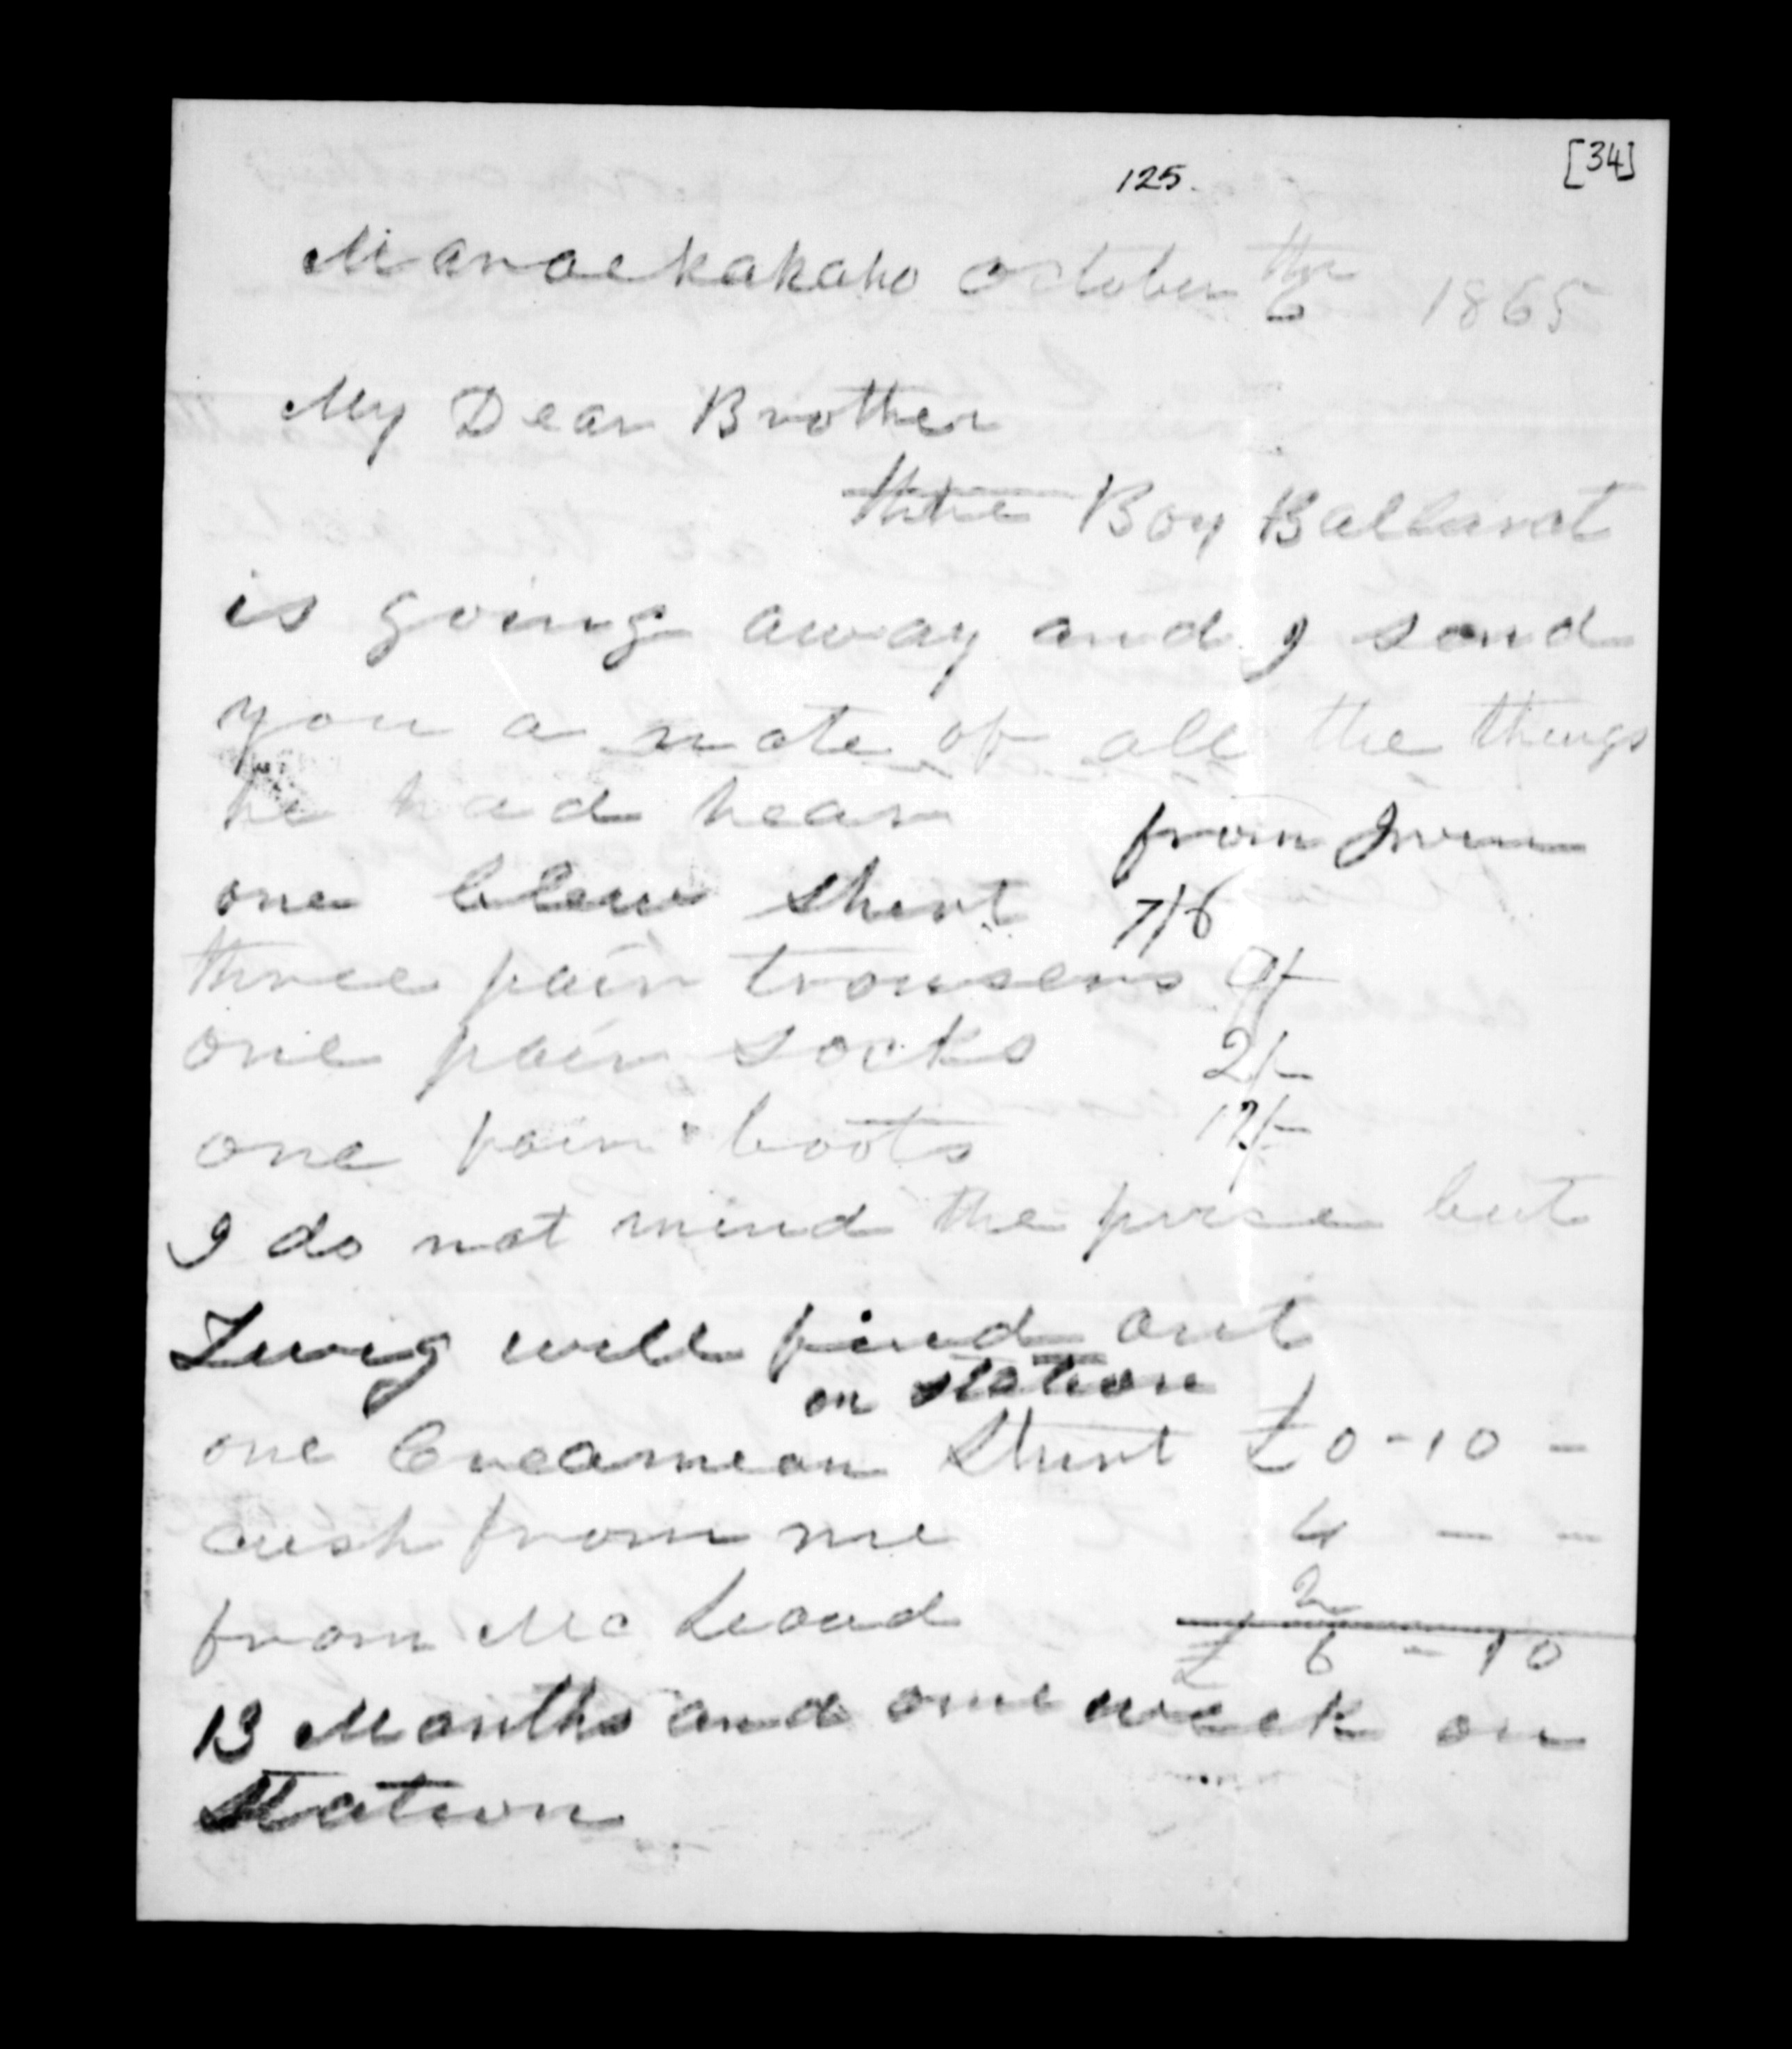 [34]
125.
Maraekakaho October 6th 1865
My Dear Brother
the Boy Ballarat
is going away and I sand
you a note of all the things
he had hear
from Irvin
one blew Shirt 7/6
three pair trousers 9/-
one pair socks 2/-
one pair boots 12/-
I do not mind the prise but
will find out
on Station
one Creamean Shirt £0-10-
cash from me 4 - -
from Mc Leoud 2
£ 6 - 10
13 Months and one week on
Station